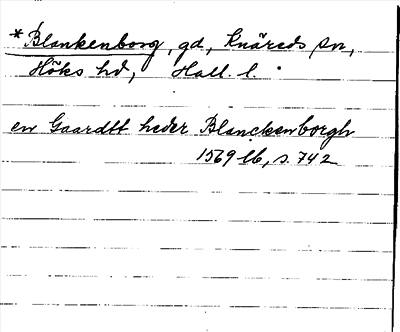 *Blankenborg, gd, Knäreds sn,
Höks hd, Hall. l.
en Gaardtt heder Blanckenborgh
1569 lb, s. 742